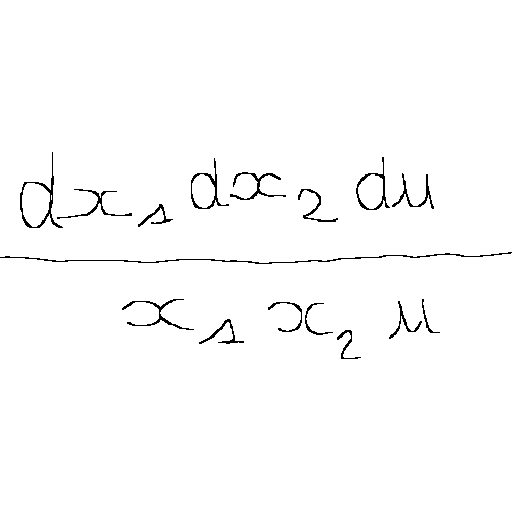 \frac{dx_1 dx_2 du}{x_1 x_2 u}